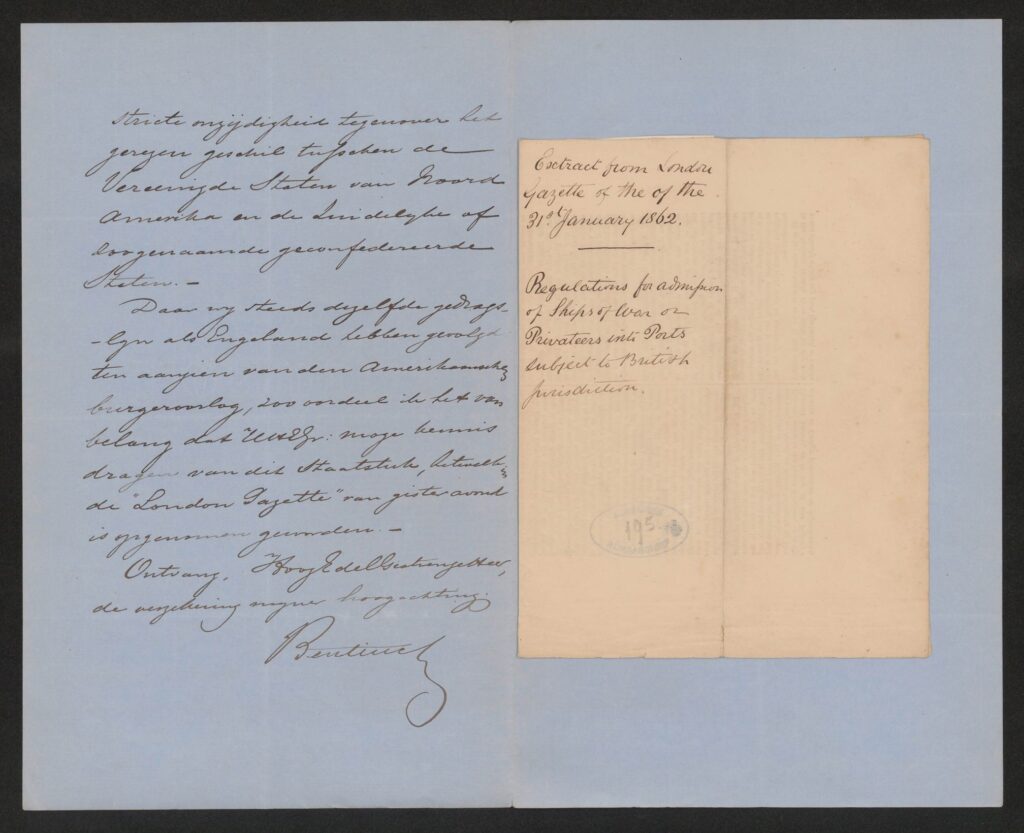 stricte onzijdigheid tegenover het
gerezen geschil tusschen de
Vereenigde Staten van Noord
Amerika en de Zuidelyke of
zoogenaamde geconfedereerde
Staten. –
Daar wy steeds dezelfde gedrags-
-lyn als Engeland hebben gevolgd
ten aanzien van den Amerikaansche
burgeroorlog, zoo oordeel ik het van
belang dat UHEGr: moge kennis
dragen van dit Staatsstuk, hetwelk in
de "London Gazette" van gister avond
is opgenomen geworden. –
Ontvang, HoogEdelGestrenge Heer,
de verzekering myner hoogachting.
Bentinck
Extract from London
Gazette of the of the
31st January 1862.
Regulations for admission
of Ships of War or
Privateers into Ports
subject to British
jurisdiction.
195